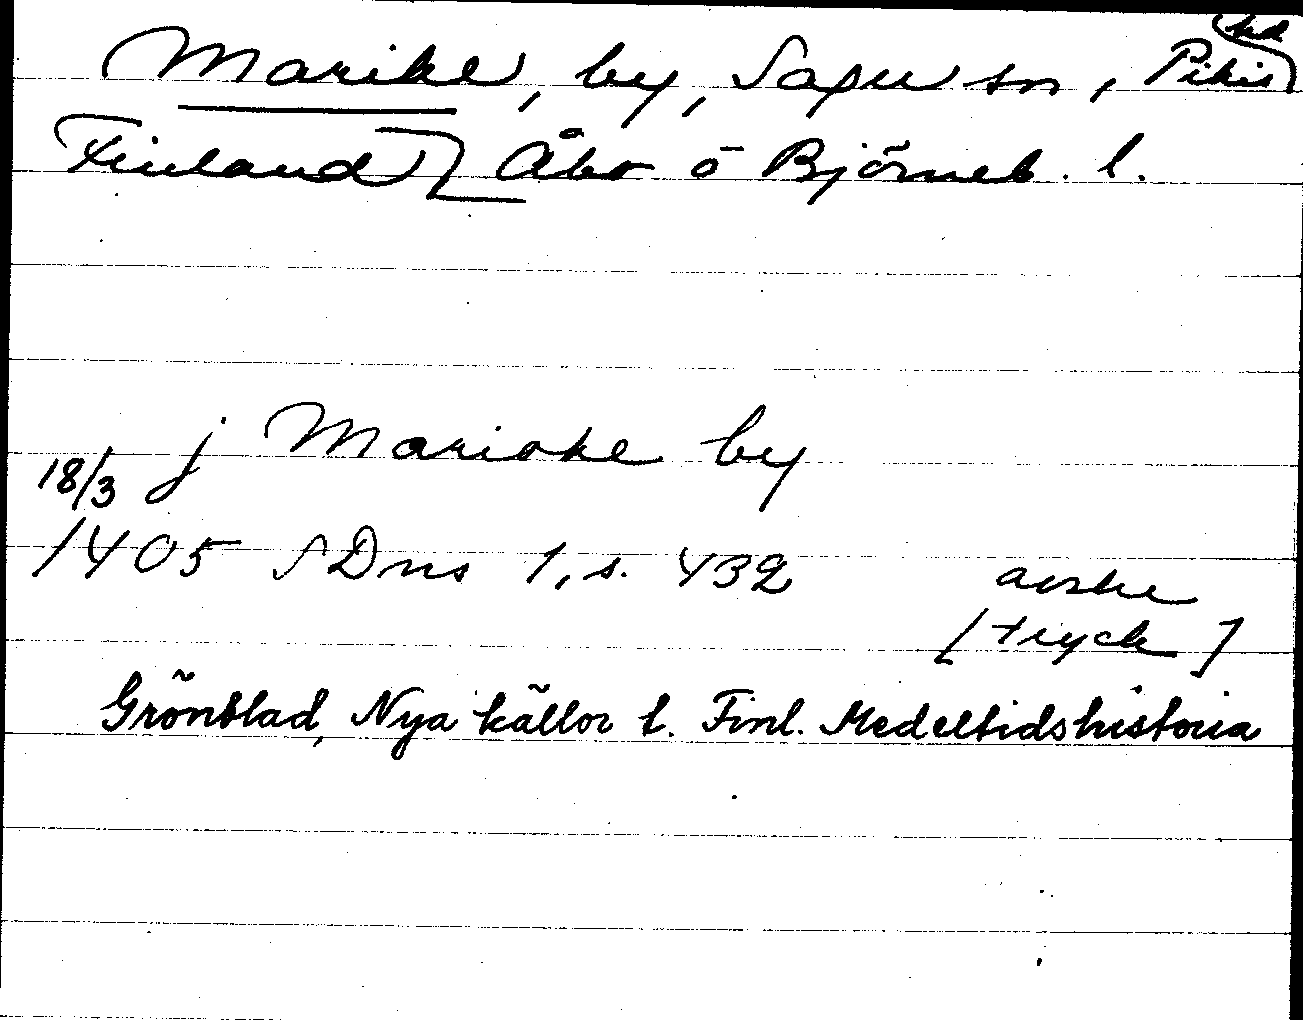 Marike, by, Sagu sn, Pikis hd
Finland Åbo o Björneb. l.
j Marioke by
18/3
1405 SDns 1, s. 432
avskr
[tryck]
Grönblad, Nya källor t. Finl. Medeltidshistoria